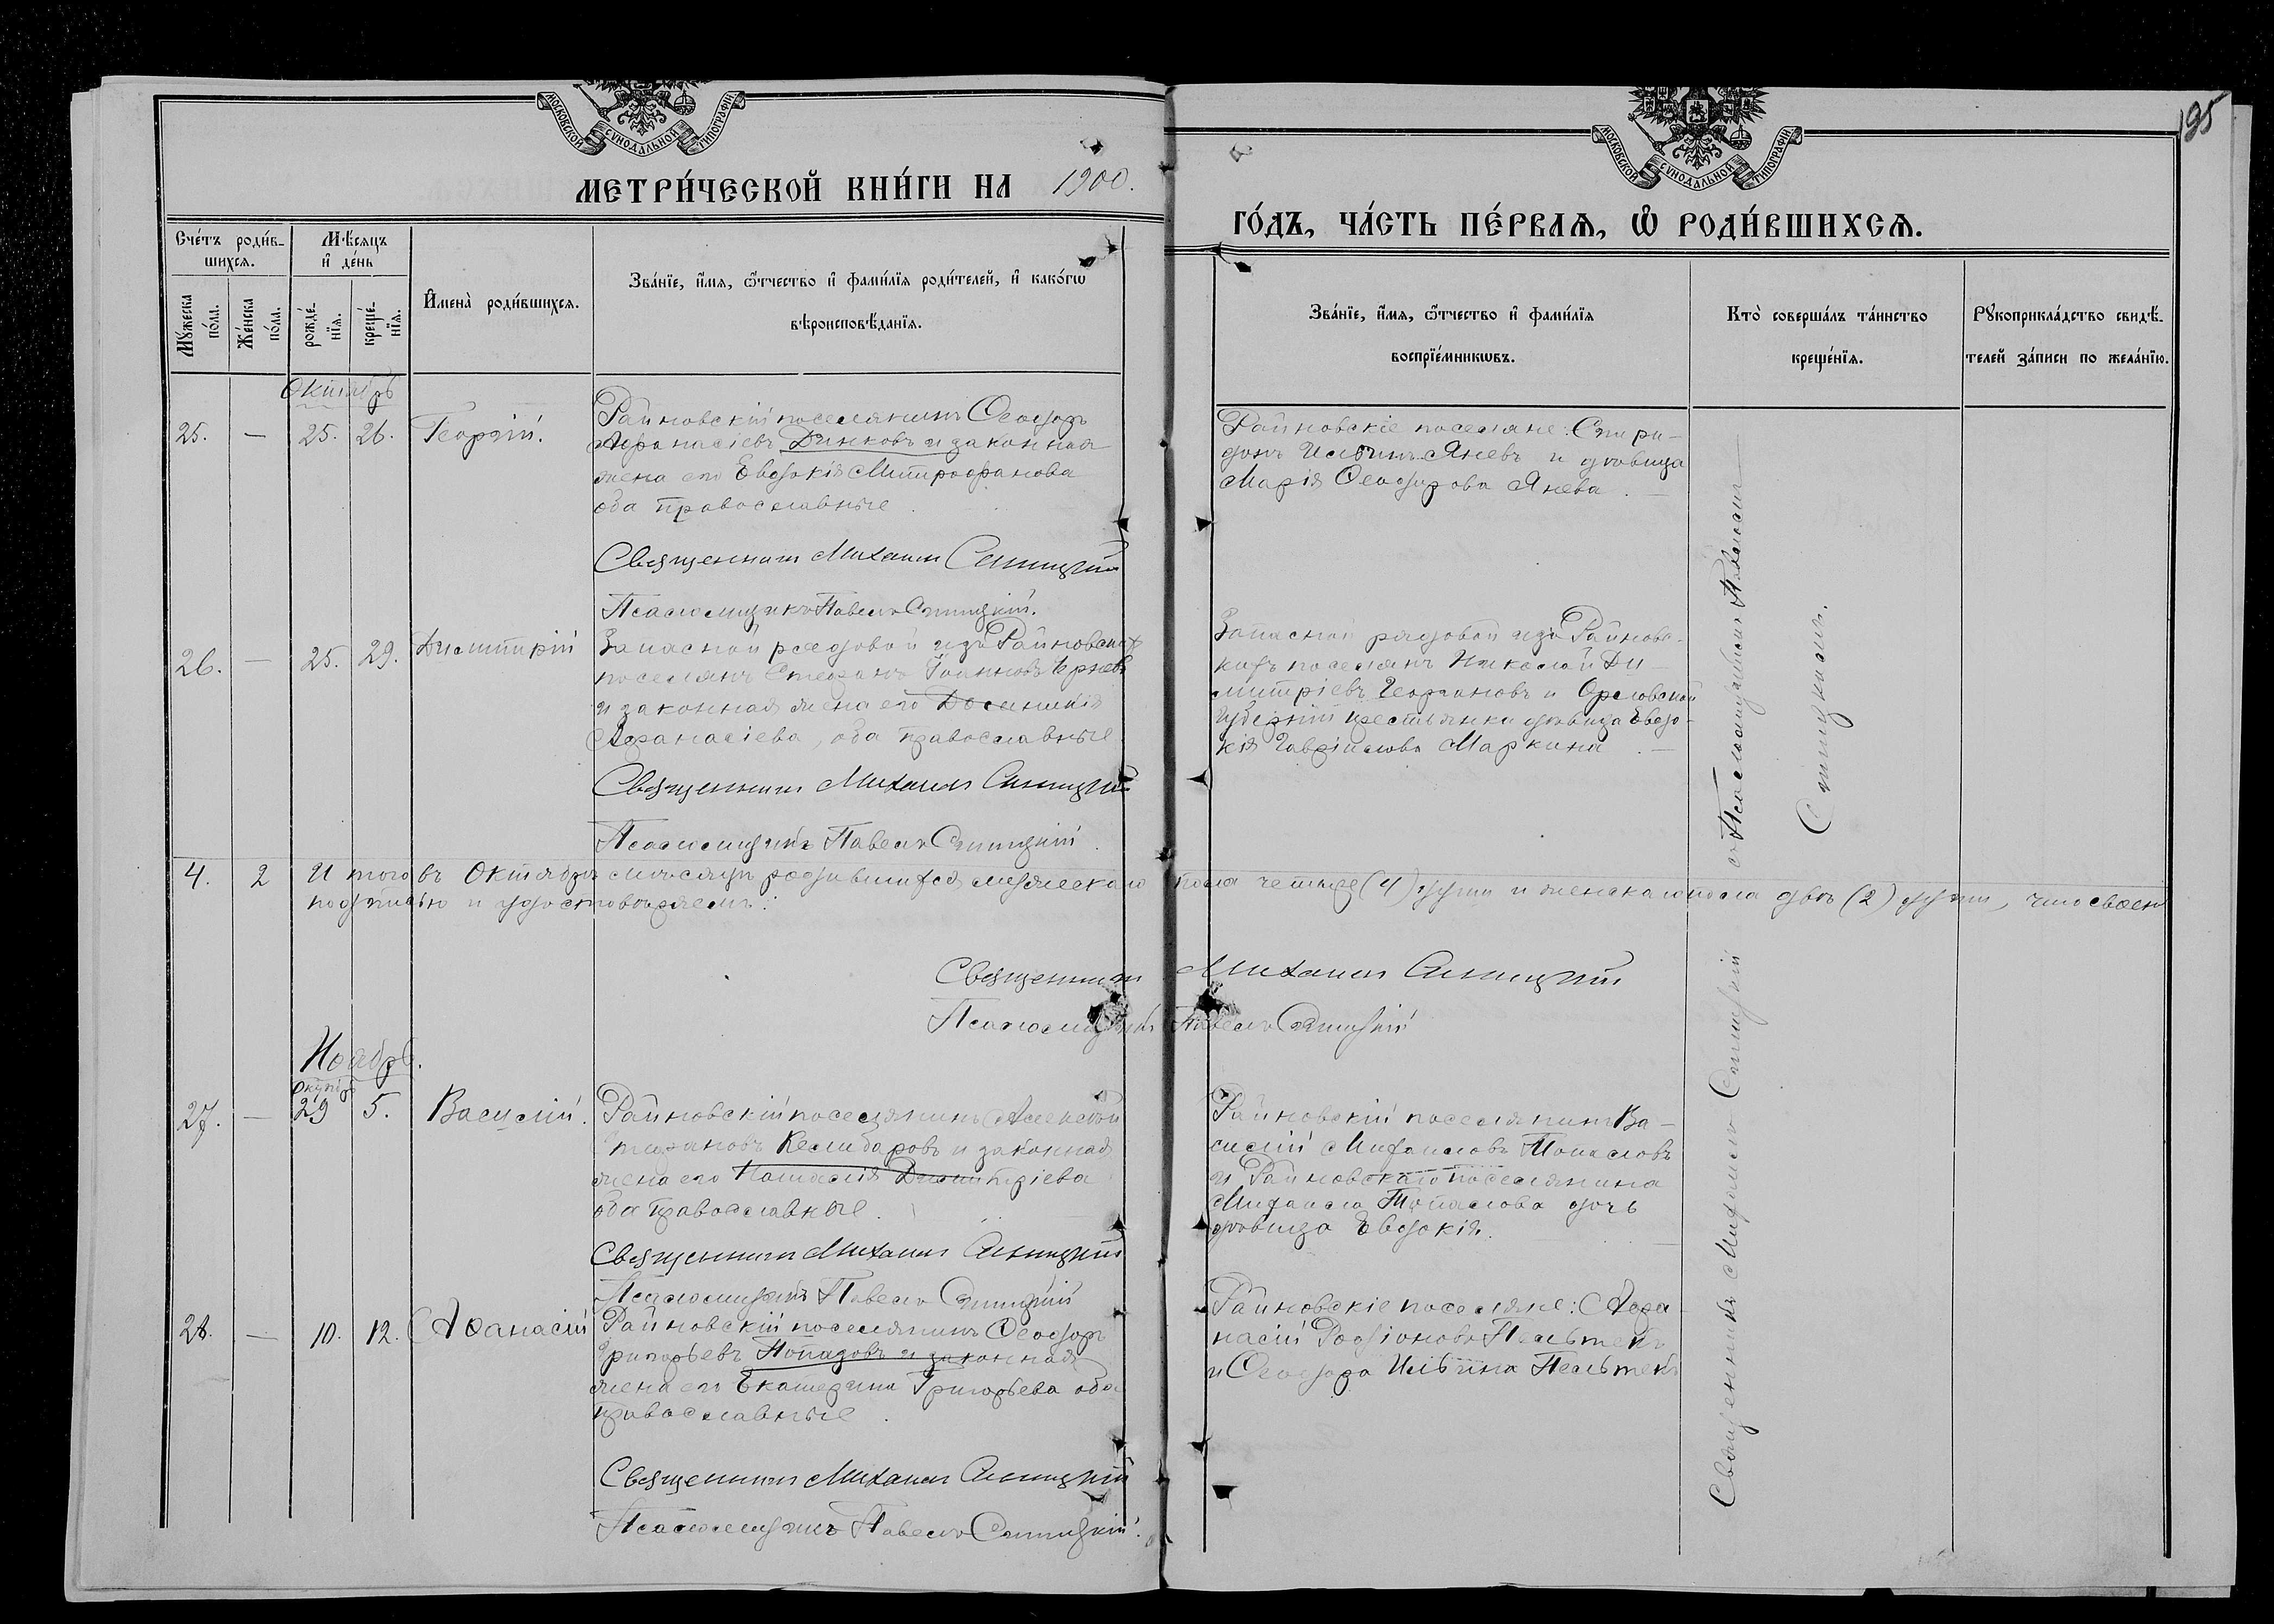 195
МОСКОВСКОЙ СѴНОДАЛЬНОЙ ТИПОГРАФІИ
МОСКОВСКОЙ СѴНОДАЛЬНОЙ ТИПОГРАФІИ
МЕТРИ́ЧЕСКОЙ КНИ́ГИ НА 1900.
ГО́ДЪ, ЧА́СТЬ ПЕ́РВАѦ, Ѡ҆ РОДИ́ВШИХСѦ.
Сче́тъ роди́в-
шихсѧ.
Мѣ́сѧцъ
и҆ де́нь
Мꙋ́жеска
по́ла.
Же́нска
по́ла.
рожде́-
нїѧ.
креще́-
нїѧ.
И҆мена̀ роди́вшихсѧ.
Зва́нїе, и҆́мѧ, ѻ҆́тчество и҆ фами́лїѧ роди́телей, и҆ како́гѡ
вѣроисповѣ́данїѧ.
Зва́нїе, и҆́мѧ, ѻ҆́тчество и҆ фами́лїѧ
воспрїе́мникѡвъ.
Кто̀ соверша́лъ та́инство
креще́нїѧ.
Рꙋкоприкла́дство свидѣ́-
телей за́писи по жела́нїю.
Октябрь
25. — 25. 26. Георгій.
Райновскій поселянинъ Ѳеодоръ
Аѳанасіевъ Динковъ и законная
жена его Евдокія Митрофанова
оба православные.
Священникъ Михаилъ Синицкій
Псаломщикъ Павелъ Синицкій.
Райновскіе поселяне: Спири-
донъ Ильинъ Яневъ и дѣвица
Марія Ѳеодорова Янева.
26. — 25. 29. Димитрій
Запасной рядовой изъ Райновскихъ
поселянъ Стефанъ Іоанновъ
и законная жена его
Аѳанасіева, оба православные
Священникъ Михаилъ Синицкій
Псаломщикъ Павелъ Синицкій.
Запасной рядовой изъ Райновс-
кихъ поселянъ Николай Ди-
митріевъ и Орловской
губерніи крестьянка дѣвица Евдо-
кія Гавріилова Маркина.
4. 2 И того въ Октябрѣ мѣсяцѣ родившихся мужескаго пола четыре (4) души и женскаго пола двѣ (2) души, что своею
подписью и удостовѣряемъ:
Священникъ Михаилъ Синицкій
Псаломщикъ Павелъ Синицкій
Ноябрь.
Октябр
27. — 29 5. Василій.
Райновскій поселянинъ Алексѣй
Кесибаровъ и законная
жена его Димитріева
оба православные.
Священникъ Михаилъ Синицкій
Псаломщикъ Павелъ Синицкій
Райновскій поселянинъ Ва-
силій Михаиловъ Топаловъ
и Райновскаго поселянина
Михаила Топалова дочь
дѣвица Евдокія.
28. — 10. 12. Аѳанасій
Райновскій поселянинъ Ѳеодоръ
Григорьевъ и законная
жена его Екатерина Григорьева оба
православные.
Священникъ Михаилъ Синицкій
Псаломщикъ Павелъ Синицкій.
Райновскіе поселяне: Аѳа-
насій Родіоновъ Пельтекъ
и Ѳеодора Ильина Пельтекъ
Священникъ Михаилъ Синицкій съ Псаломщикомъ Павломъ
Синицкимъ.